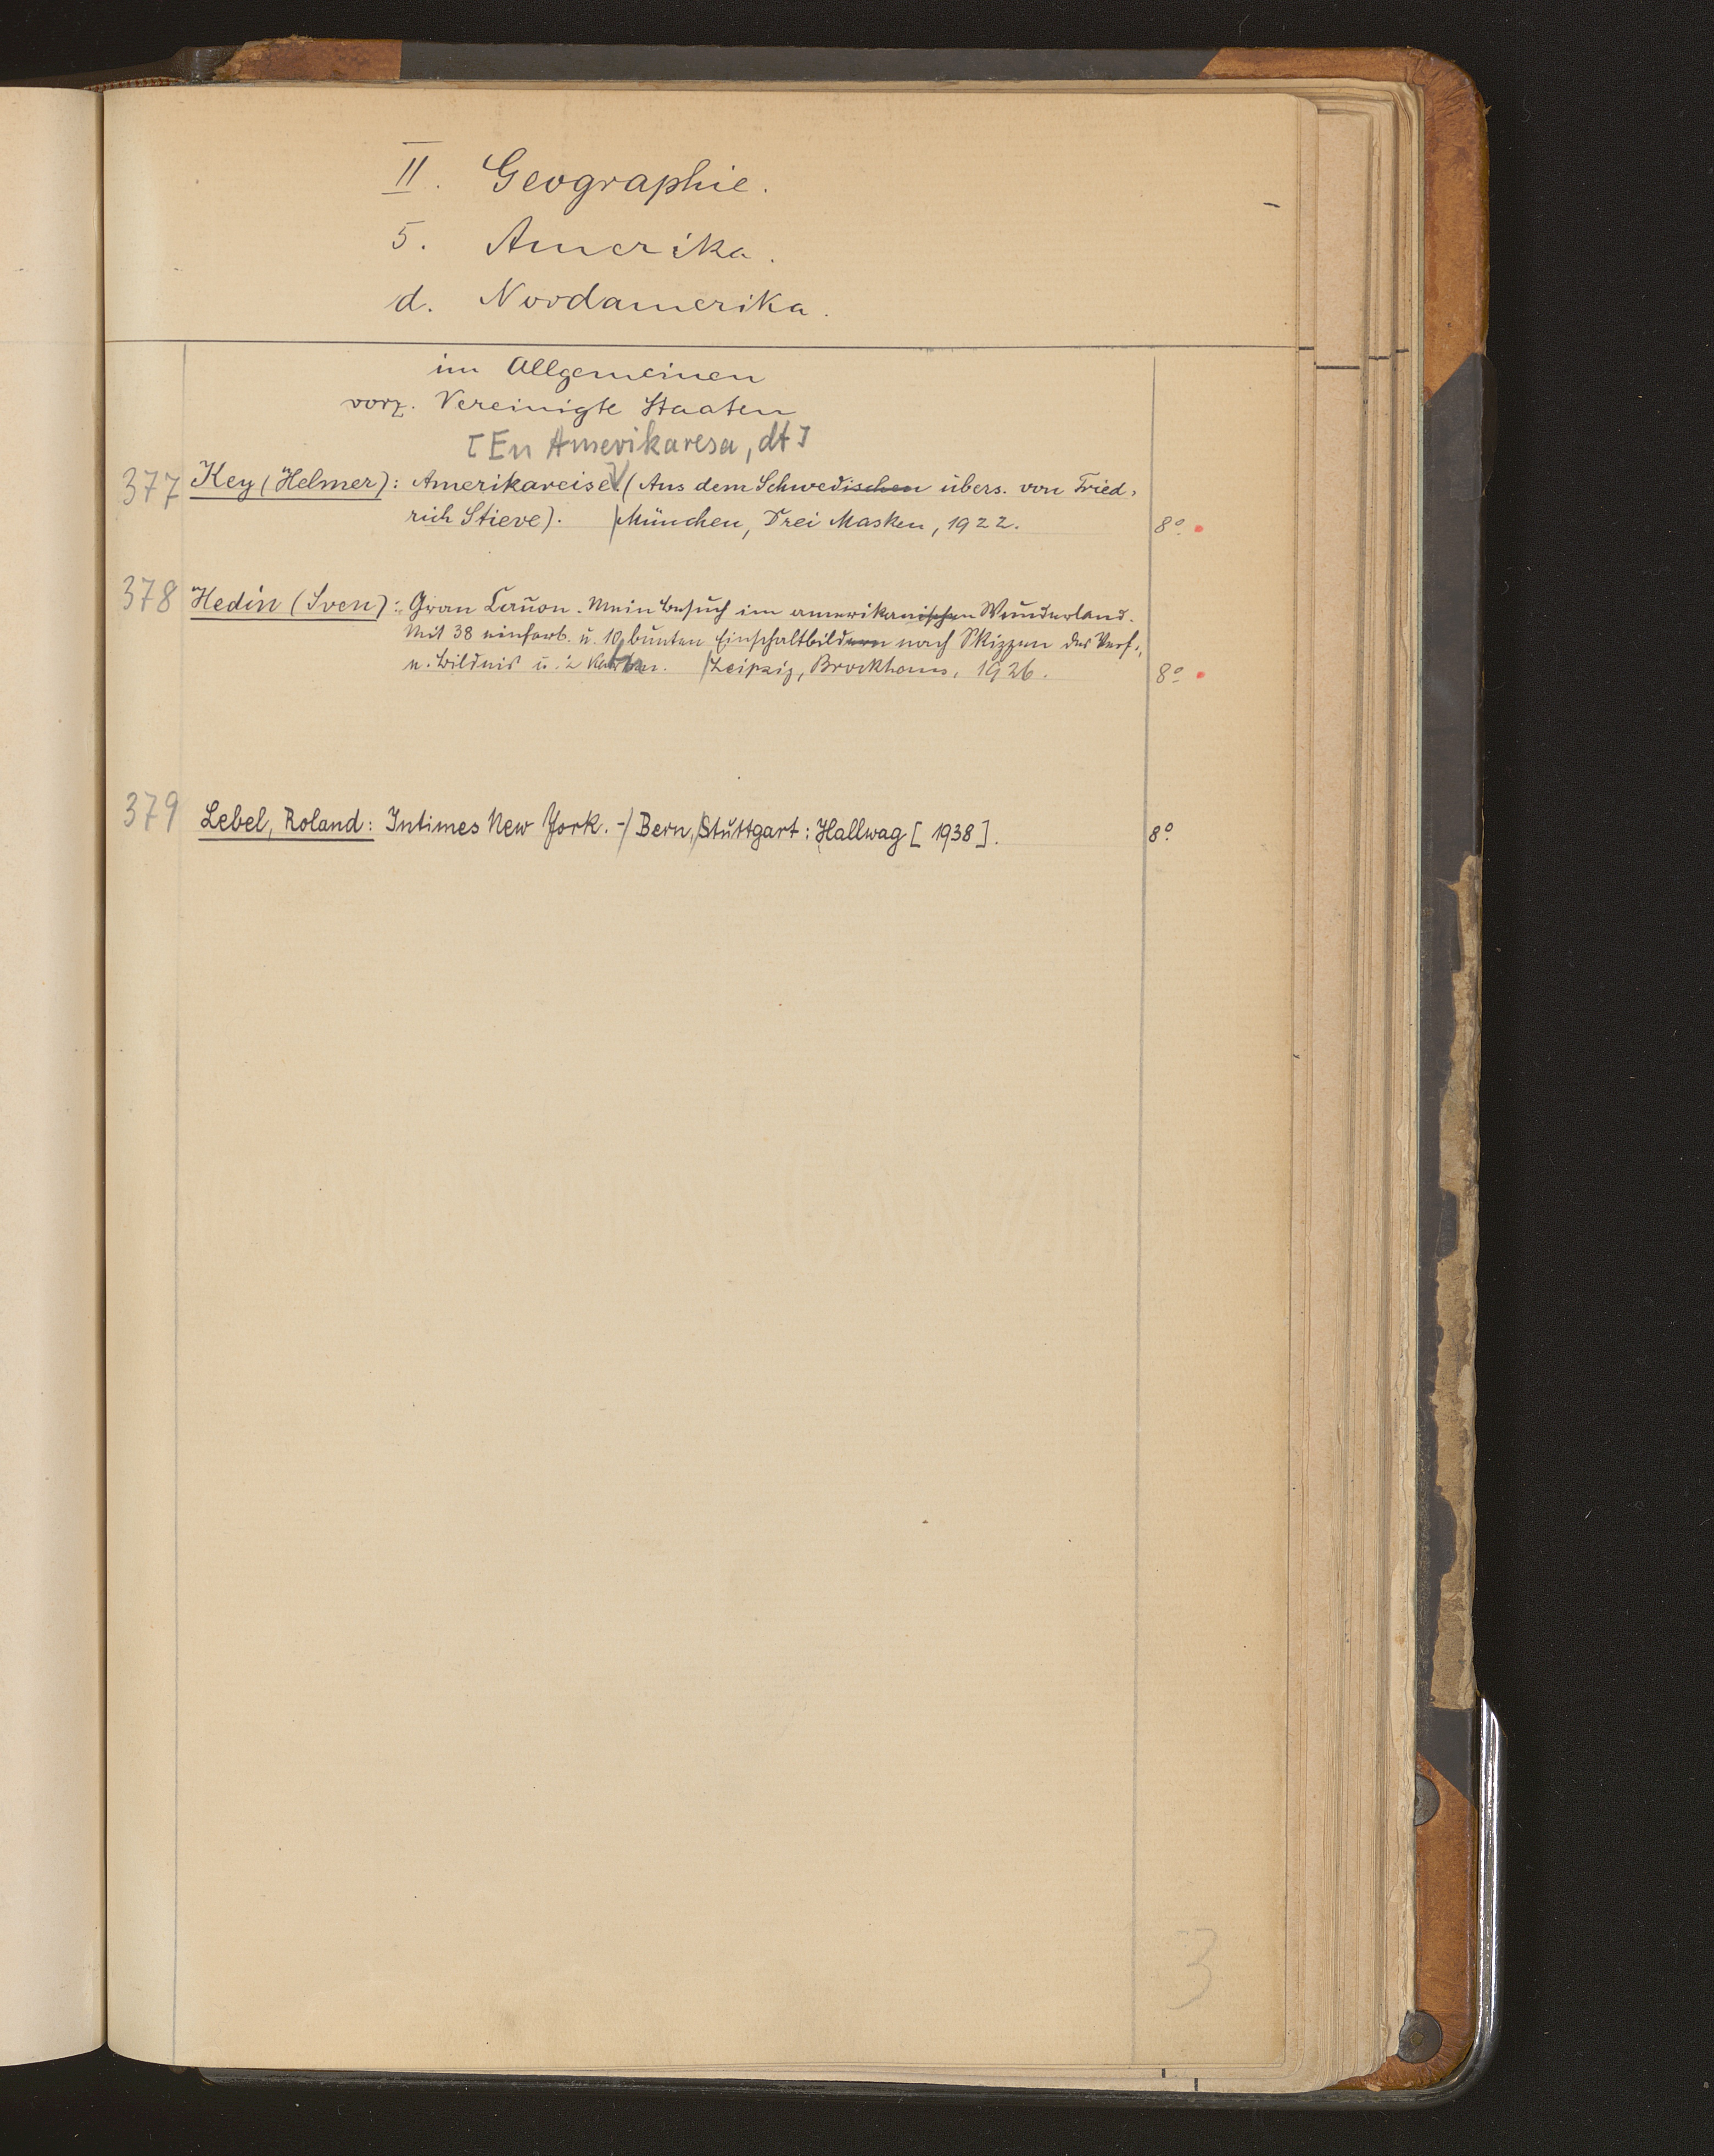 II. Geographie.
5. Amerika.
d. Nordamerika.
im Allgemeinen
vorz. Vereinigte Staaten
[En Amerikaresa, dt]
377 Key (Helmer): Amerikareise (Aus dem Schwedischen übers. von Fried-
rich Stieve). München, Drei Masken, 1922. 8°
378 Hedin (Sven): Gran Cañon. Mein Besuch im amerikanischen Wunderland.
Mit 38 einfarb. u. 10 bunten Einschaltbildern nach Skizzen des Verf.,
u. Bildnis u. 2 Karten. Leipzig, Brockhaus, 1926. 8°
379 Lebel, Roland: Intimes New York. - Bern, Stuttgart: Hallwag [1938]. 8°
3